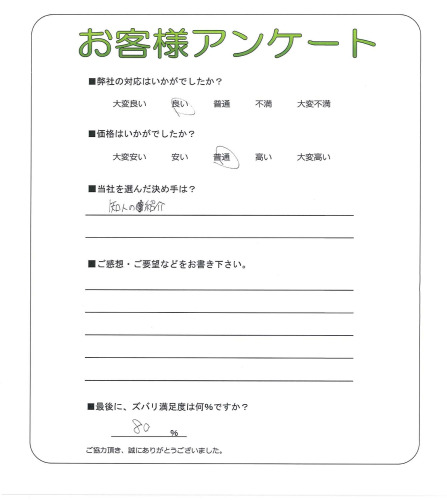 お客様アンケート
■弊社の対応はいかがでしたか？
大変良い　良い　普通　不満　大変不満
■価格はいかがでしたか？
大変安い　安い　普通　高い　大変高い
■当社を選んだ決め手は？
知人の紹介
■ご感想・ご要望などをお書き下さい。
■最後に、ズバリ満足度は何%ですか？
80 %
ご協力頂き、誠にありがとうございました。